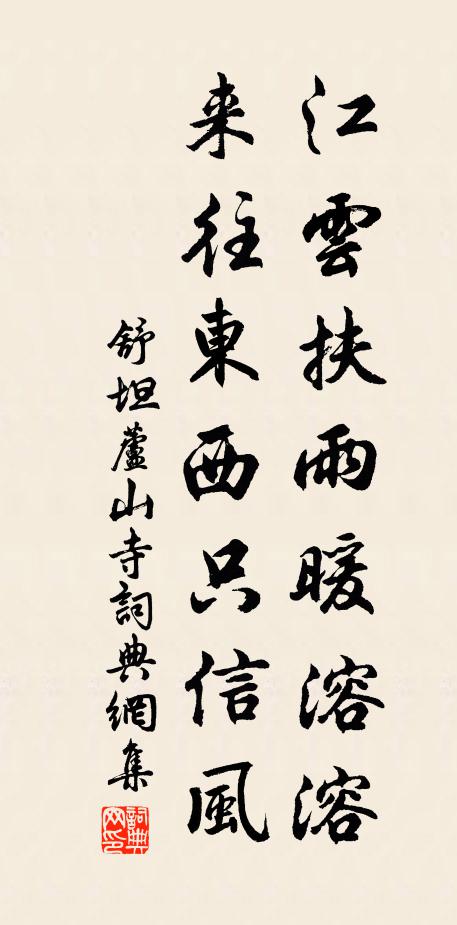 江雲扶雨暖溶溶
来往東西只信風
舒坦蘆山寺詞典網集
詞典網印